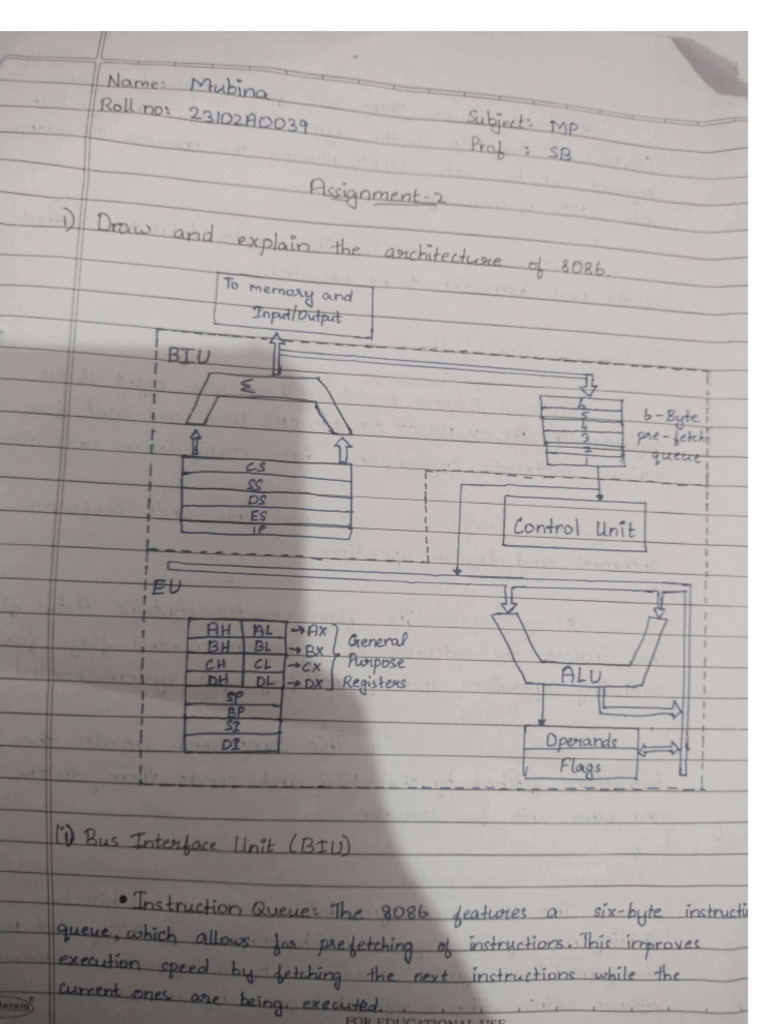 Name: Mubina
Roll no: 23102A0039
Subject: MP
Prof : SB
Assignment-2
1) Draw and explain the architecture of 8086.
To memory and
Input/Output
BIU
Σ
6
5
4
3
2
1
6-Byte
pre-fetch
queue
CS
SS
DS
ES
IP
Control Unit
EU
AH AL → AX
BH BL → BX
CH CL → CX
DH DL → DX
General
Purpose
Registers
SP
BP
SI
DI
ALU
Operands
Flags
(i) Bus Interface Unit (BIU)
• Instruction Queue: The 8086 features a six-byte instructi
queue, which allows for prefetching of instructions. This improves
execution speed by fetching the next instructions while the
current ones are being executed.
FOR EDUCATIONAL USE